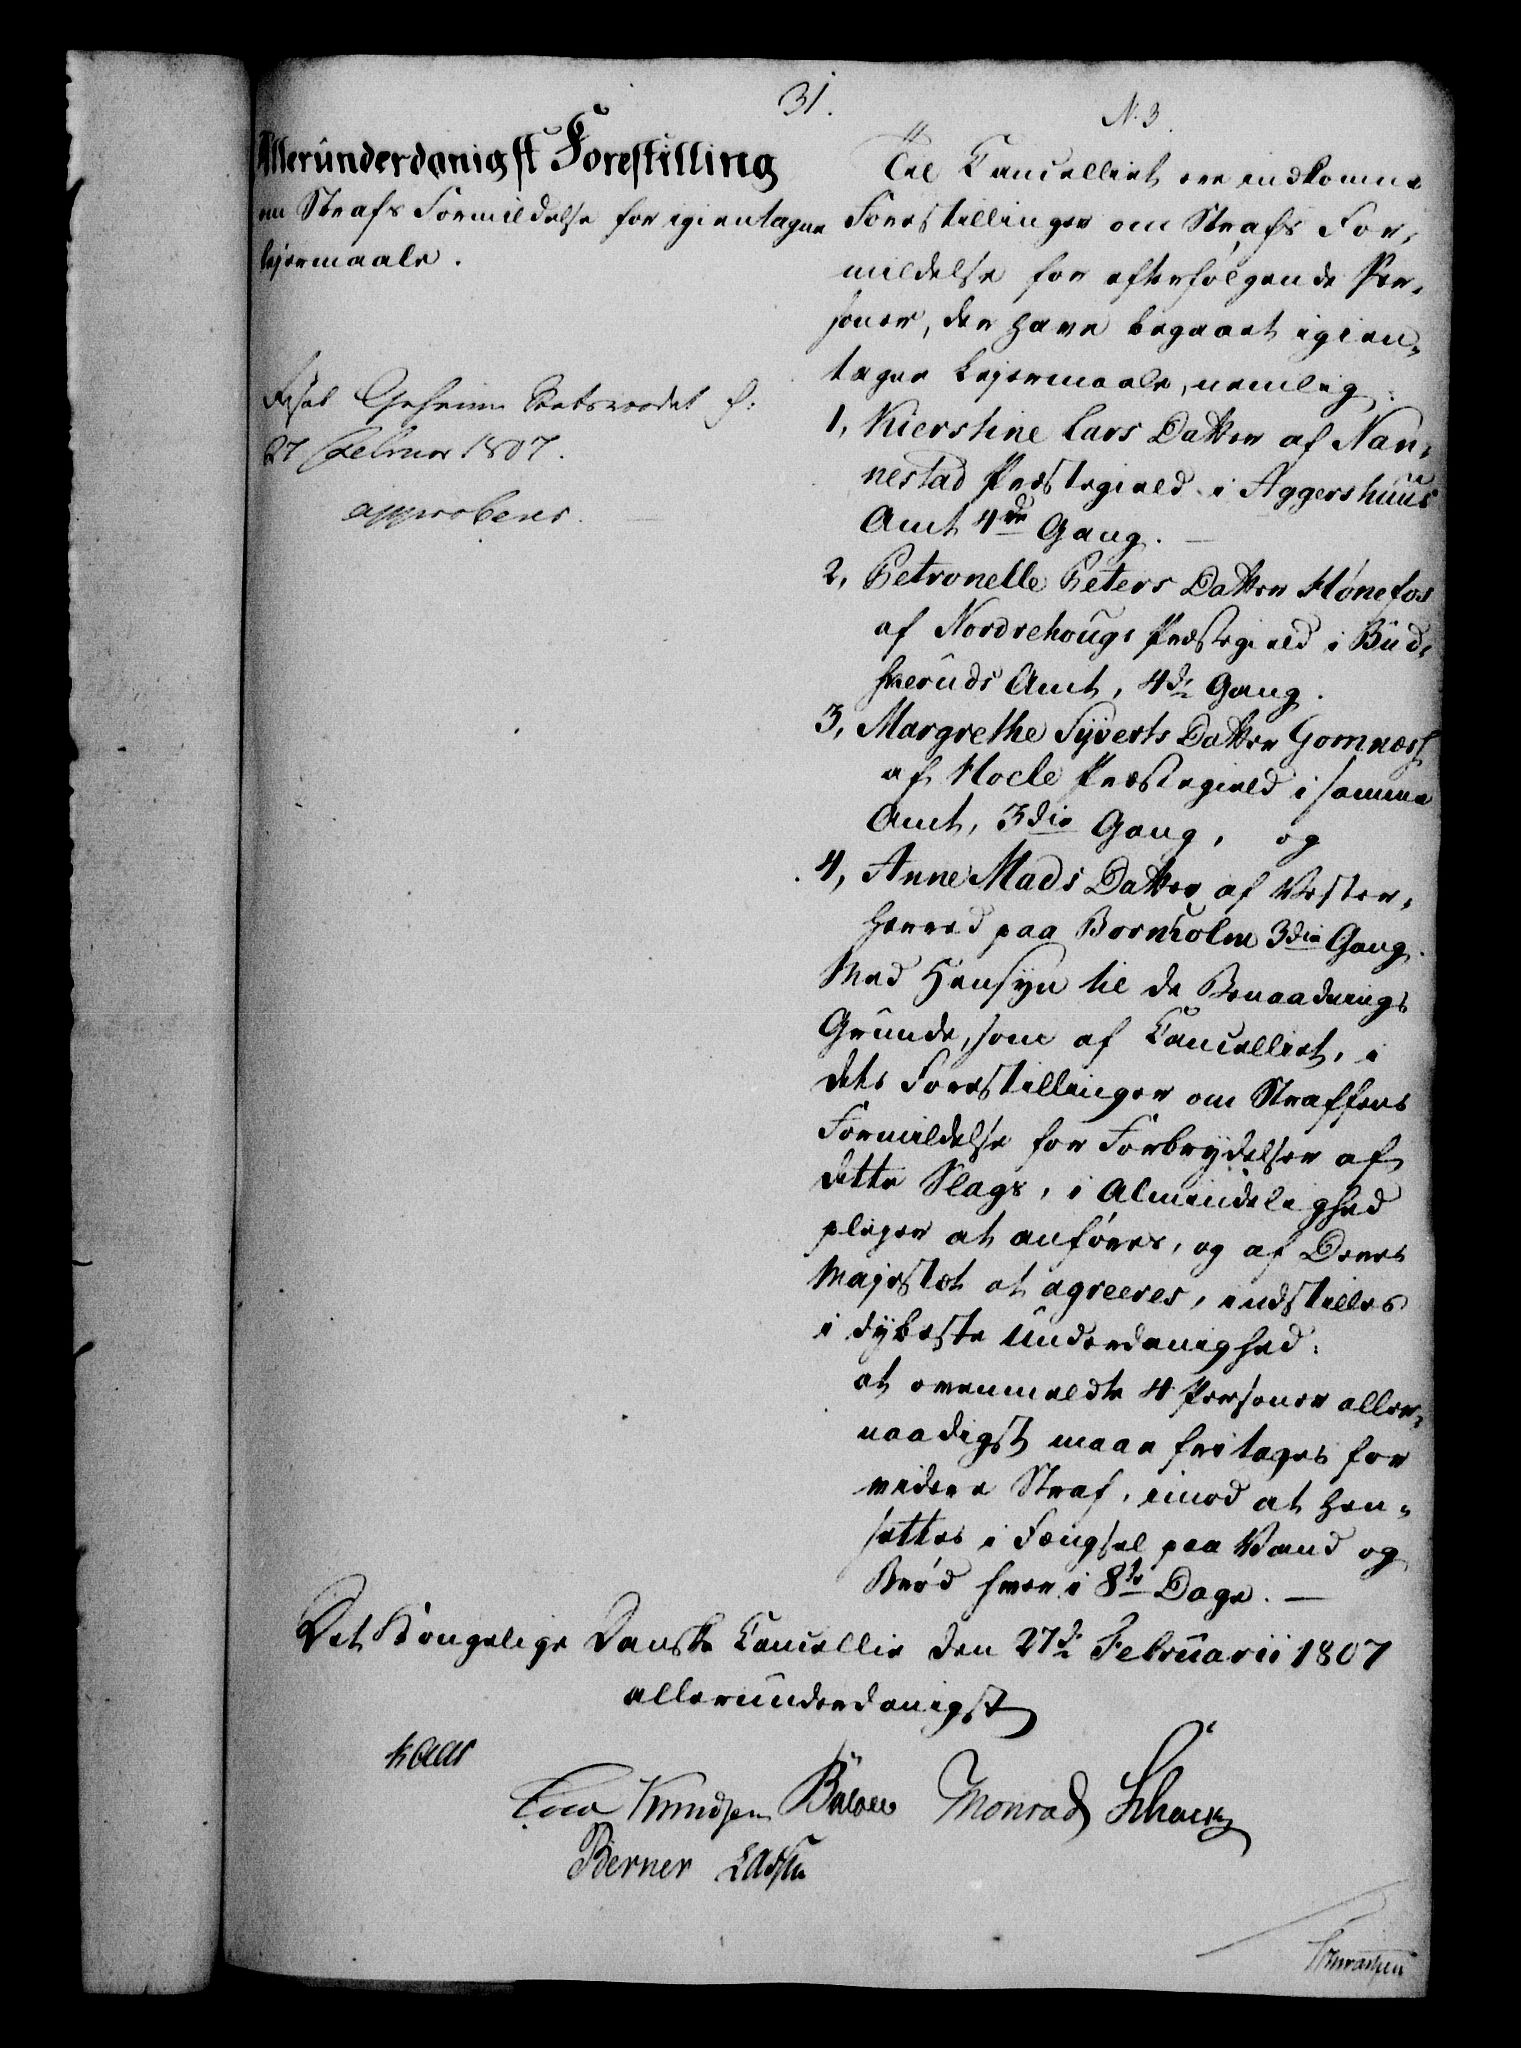 31.
N. 3.
Allerunderdanigst Forestilling
om Strafs Formildelse for igientagne
Lejermaale.
Resol. Geheime Statsraadet d:
27 Februar 1807.
approberes.
Til Cancelliet ere indkomne
Forestillinger om Strafs For-
mildelse for efterfølgende Per-
soner, der have begaaet igien-
tagne Lejermaale, nemlig:
1, Kierstine Lars Datter af Nan-
nestad Præstegield i Aggershuus
Amt 4de Gang. —
2, Petronelle Peters Datter Hønefos
af Nordrehougs Præstegield i Bud-
skeruds Amt, 4de Gang.
3, Margrethe Syverts Datter Gomnæss
af Hocle Præstegield i samme
Amt, 3die Gang, og
4, Anne Mads Datter af Vester-
Herred paa Bornholm 3die Gang.
Med Hensyn til de Benaadnings
Grunde, som af Cancelliet, i
dets Forestillinger om Straffens
Formildelse for Forbrydelser af
dette Slags, i Almindelighed
pleyer at anføres, og af Deres
Majestæt at agreeres, indstilles
i dybeste Underdanighed:
at ovenmeldte 4 Personer aller-
naadigst maae fritages for
videre Straf, imod at hen-
settes i Fængsel paa Vand og
Brød hver i 8te Dage. —
Det Kongelige Danske Cancellie den 27de Februarii 1807
allerunderdanigst
Kaas
Knudsen Bülow Monrad Schack
Berner Lassen